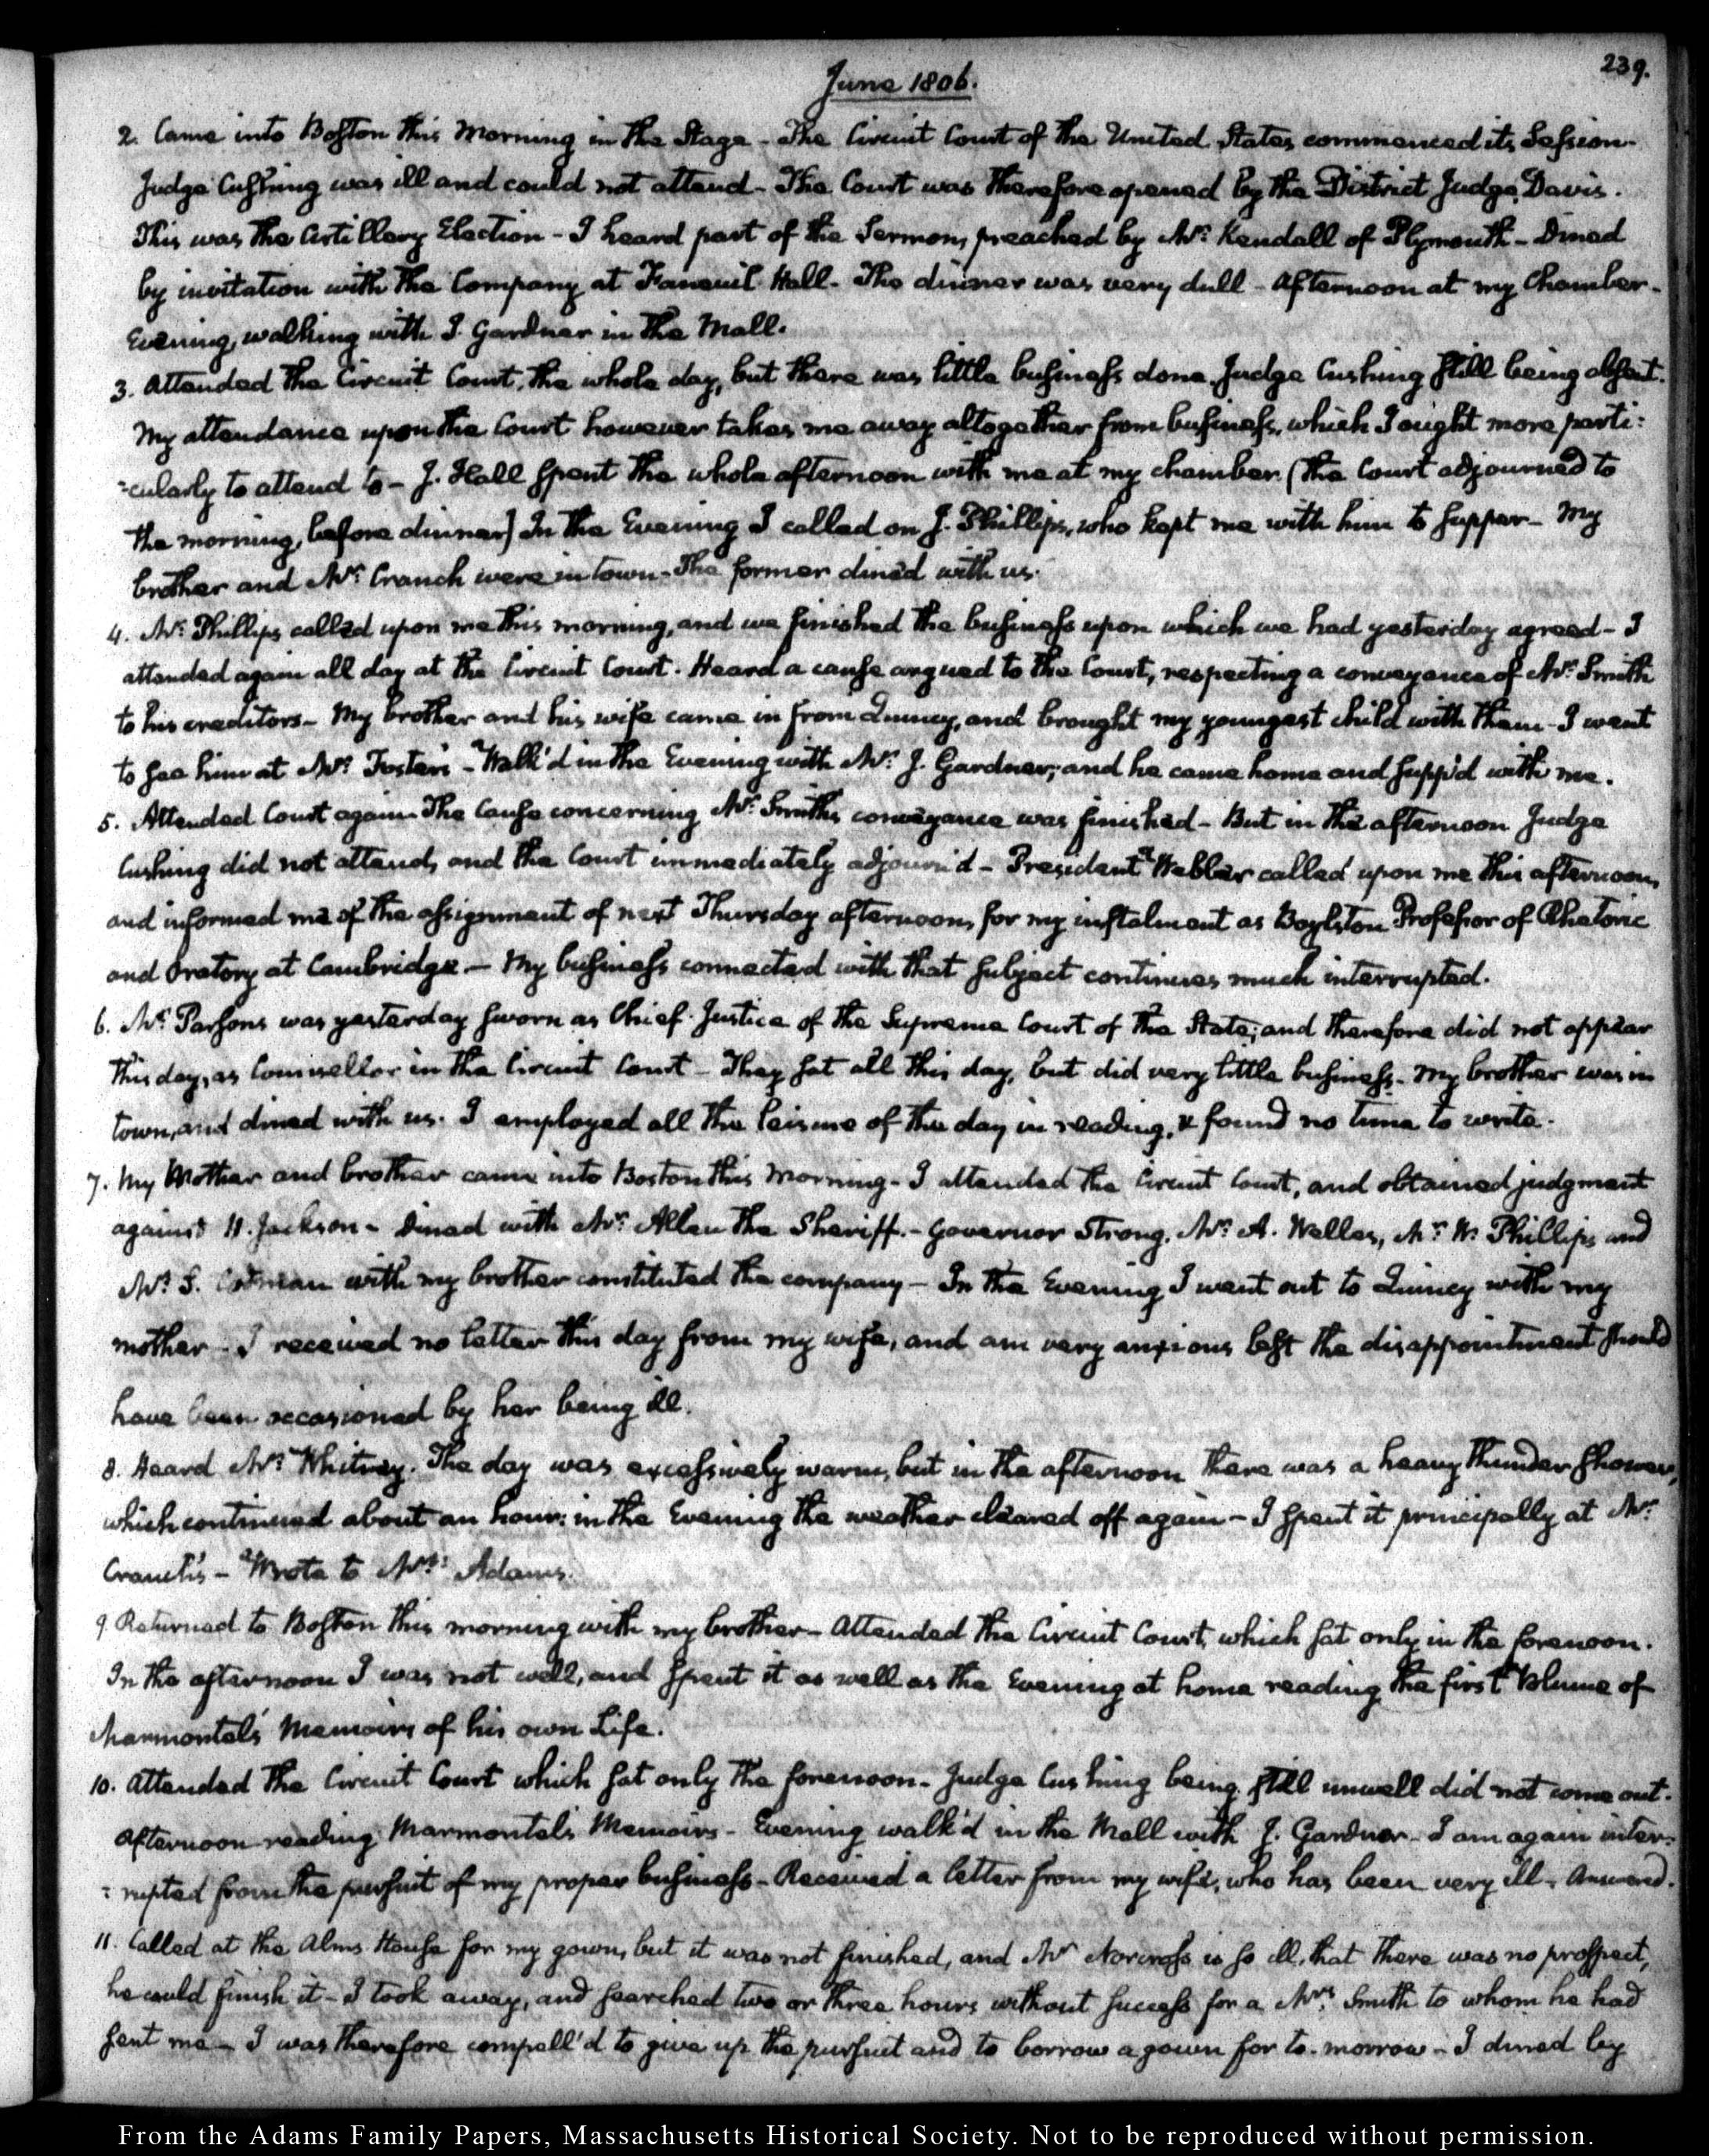 239.
June 1806.
2. Came into Boston this Morning in the Stage - The Circuit Court of the United States commenced its Session.
Judge Cushing was ill and could not attend - The Court was therefore opened by the District Judge, Davis.
This was the Artillery Election - I heard part of the Sermon, preached by Mr: Kendall of Plymouth - Dined
by invitation with the Company at Faneuil Hall. The dinner was very dull - Afternoon at my Chamber -
Evening, walking with J. Gardner in the Mall.
3. Attended the Circuit Court, the whole day, but there was little business done. Judge Cushing still being absent.
My attendance upon the Court however takes me away altogether from business, which I ought more parti:
:cularly to attend to - J. Hall spent the whole afternoon with me at my chamber (the Court adjourned to
the morning, before dinner) In the Evening I called on J. Phillips, who kept me with him to supper - My
brother and Mr: Cranch were in town - The former dined with us.
4. Mr: Phillips called upon me this morning, and we finished the business upon which we had yesterday agreed - I
attended again all day at the Circuit Court. Heard a cause argued to the Court, respecting a conveyance of Mr: Smith
to his creditors - My brother and his wife came in from Quincy, and brought my youngest child with them - I went
to see him at Mr: Foster's - Walk'd in the Evening with Mr: J. Gardner; and he came home and supp'd with me.
5. Attended Court again. The Cause concerning Mr: Smith's conveyance was finished - But in the afternoon Judge
Cushing did not attend, and the Court immediately adjourn'd - President Webber called upon me this afternoon,
and informed me of the assignment of next Thursday afternoon, for my instalment as Boylston Professor of Rhetoric
and Oratory at Cambridge. - My business connected with that subject continues much interrupted.
6. Mr: Parsons was yesterday sworn as Chief Justice of the Supreme Court of the State; and therefore did not appear
this day, as Counsellor in the Circuit Court - They sat all this day, but did very little business. My brother was in
town, and dined with us. I employed all the leisure of the day in reading, & found no time to write.
7. My Mother and brother came into Boston this Morning - I attended the Circuit Court, and obtained judgment
against H. Jackson - Dined with Mr: Allen the Sheriff. - Governor Strong, Mr: A. Welles, Mr: W. Phillips and
Mr: S. Codman with my brother constituted the company - In the Evening I went out to Quincy with my
mother - I received no letter this day from my wife, and am very anxious lest the disappointment should
have been occasioned by her being ill.
8. Heard Mr: Whitney. The day was excessively warm, but in the afternoon there was a heavy thunder shower,
which continued about an hour: in the Evening the weather cleared off again - I spent it principally at Mr:
Cranch's - Wrote to Mrs: Adams.
9. Returned to Boston this morning with my brother - Attended the Circuit Court, which sat only in the forenoon.
In the afternoon I was not well, and spent it as well as the Evening at home reading the first Volume of
Marmontel's Memoirs of his own Life.
10. Attended the Circuit Court which sat only the forenoon - Judge Cushing being still unwell did not come out.
Afternoon reading Marmontel's Memoirs - Evening walk'd in the Mall with J. Gardner - I am again inter:
:rupted from the pursuit of my proper business - Received a letter from my wife, who has been very ill - Answered.
11. Called at the Alms House for my gown, but it was not finished, and Mr Norcross is so ill, that there was no prospect,
he could finish it - I took away, and searched two or three hours without success for a Mrs: Smith to whom he had
sent me - I was therefore compell'd to give up the pursuit and to borrow a gown for to-morrow - I dined by
From the Adams Family Papers, Massachusetts Historical Society. Not to be reproduced without permission.